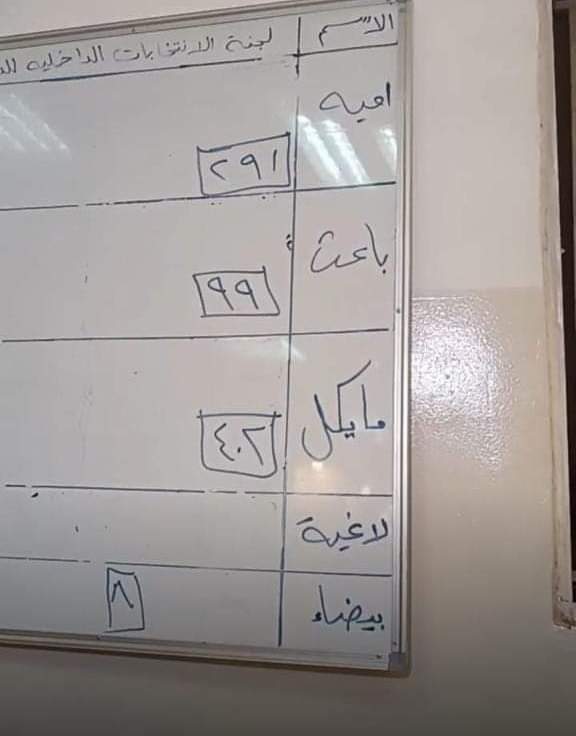 الاسم لجنة الانتخابات الداخلية
امية
٢٩١
باعث
٩٩
مايكل
٤٠٢
لاغية
بيضاء
٨